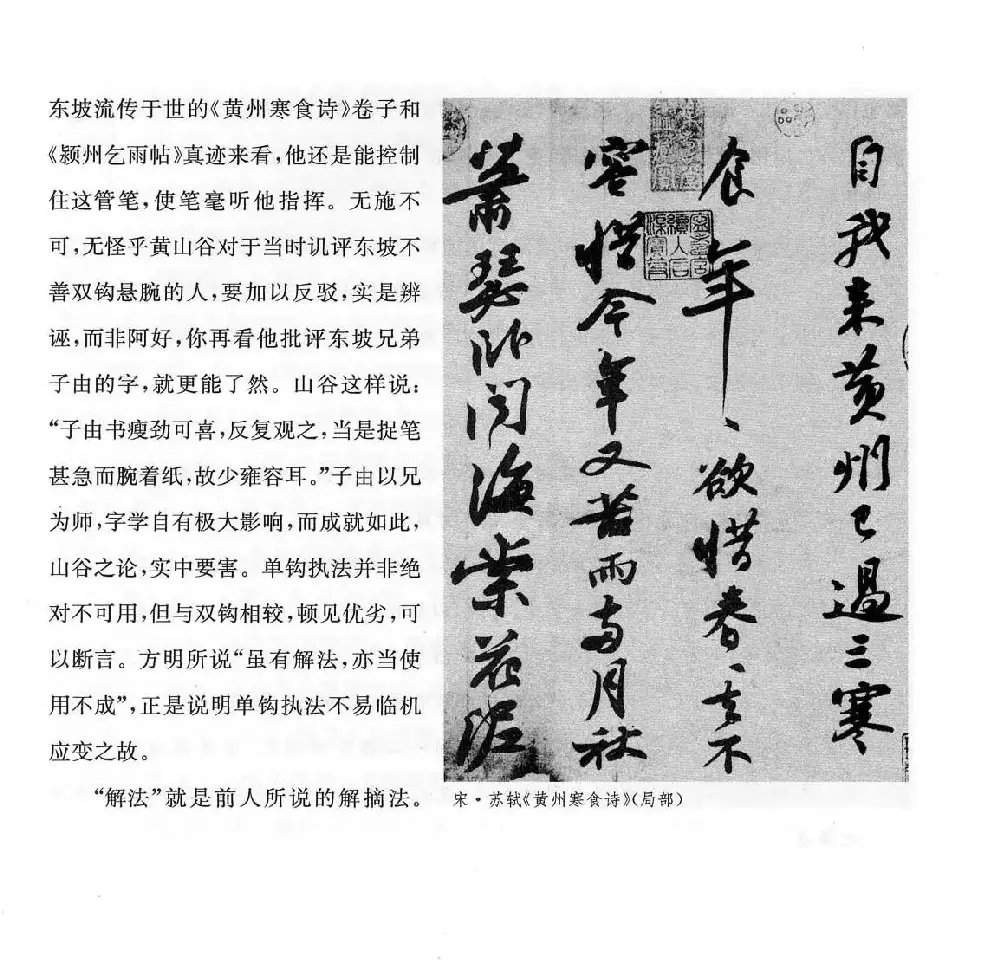 东坡流传于世的《黄州寒食诗》卷子和
《颍州乞雨帖》真迹来看，他还是能控制
住这管笔，使笔毫听他指挥。无施不
可，无怪乎黄山谷对于当时讥评东坡不
善双钩悬腕的人，要加以反驳，实是辨
诬，而非阿好，你再看他批评东坡兄弟
子由的字，就更能了然。山谷这样说：
“子由书瘦劲可喜，反复观之，当是捉笔
甚急而腕着纸，故少雍容耳。”子由以兄
为师，字学自有极大影响，而成就如此，
山谷之论，实中要害。单钩执法并非绝
对不可用，但与双钩相较，顿见优劣，可
以断言。方明所说“虽有解法，亦当使
用不成”，正是说明单钩执法不易临机
应变之故。
“解法”就是前人所说的解摘法。
自我来黄州已過三寒
食年、欲惜春、去不
容惜今年又苦雨兩月秋
蕭瑟卧闻海棠花泥
宋·苏轼《黄州寒食诗》（局部）